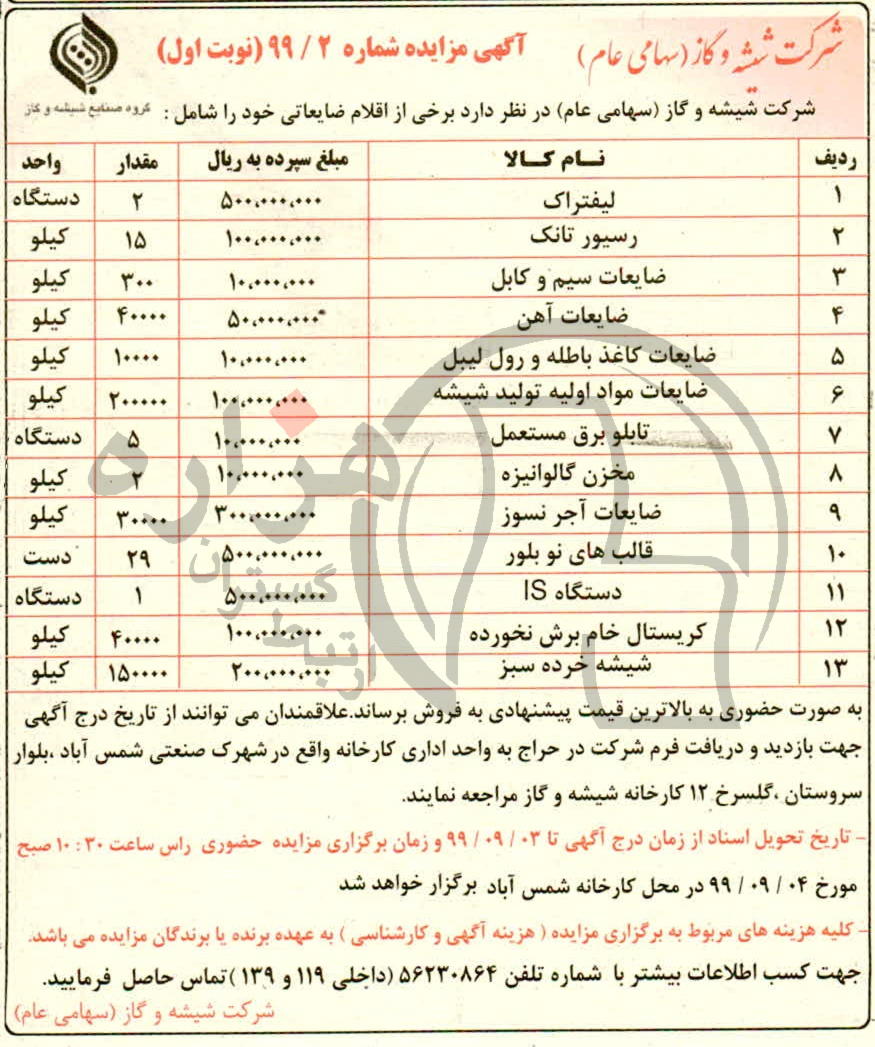 شرکت شیشه و گاز (سهامی عام)
آگهی مزایده شماره ۲ / ۹۹ (نوبت اول)
گروه صنایع شیشه و گاز
شرکت شیشه و گاز (سهامی عام) در نظر دارد برخی از اقلام ضایعاتی خود را شامل :
ردیف نـــام کـــالا مبلغ سپرده به ریال مقدار واحد
۱ لیفتراک ۵۰۰،۰۰۰،۰۰۰ ۲ دستگاه
۲ رسیور تانک ۱۰۰،۰۰۰،۰۰۰ ۱۵ کیلو
۳ ضایعات سیم و کابل ۱۰،۰۰۰،۰۰۰ ۳۰۰ کیلو
۴ ضایعات آهن ۵۰،۰۰۰،۰۰۰ ۴۰۰۰۰ کیلو
۵ ضایعات کاغذ باطله و رول لیبل ۱۰،۰۰۰،۰۰۰ ۱۰۰۰۰ کیلو
۶ ضایعات مواد اولیه تولید شیشه ۱۰۰،۰۰۰،۰۰۰ ۲۰۰۰۰۰ کیلو
۷ تابلو برق مستعمل ۱۰،۰۰۰،۰۰۰ ۵ دستگاه
۸ مخزن گالوانیزه ۱۰،۰۰۰،۰۰۰ ۲ کیلو
۹ ضایعات آجر نسوز ۳۰۰،۰۰۰،۰۰۰ ۳۰۰۰۰ کیلو
۱۰ قالب های نو بلور ۵۰۰،۰۰۰،۰۰۰ ۲۹ دست
۱۱ دستگاه IS ۵۰۰،۰۰۰،۰۰۰ ۱ دستگاه
۱۲ کریستال خام برش نخورده ۱۰۰،۰۰۰،۰۰۰ ۴۰۰۰۰ کیلو
۱۳ شیشه خرده سبز ۲۰۰،۰۰۰،۰۰۰ ۱۵۰۰۰۰ کیلو
هزاره
گستران
به صورت حضوری به بالاترین قیمت پیشنهادی به فروش برساند.علاقمندان می توانند از تاریخ درج آگهی
جهت بازدید و دریافت فرم شرکت در حراج به واحد اداری کارخانه واقع در شهرک صنعتی شمس آباد ،بلوار
سروستان ،گلسرخ ۱۲ کارخانه شیشه و گاز مراجعه نمایند.
- تاریخ تحویل اسناد از زمان درج آگهی تا ۰۳ / ۰۹ / ۹۹ و زمان برگزاری مزایده حضوری راس ساعت ۳۰ : ۱۰ صبح
مورخ ۰۴ / ۰۹ / ۹۹ در محل کارخانه شمس آباد برگزار خواهد شد
- کلیه هزینه های مربوط به برگزاری مزایده ( هزینه آگهی و کارشناسی ) به عهده برنده یا برندگان مزایده می باشد.
جهت کسب اطلاعات بیشتر با شماره تلفن ۵۶۲۳۰۸۶۴ (داخلی ۱۱۹ و ۱۳۹ )تماس حاصل فرمایید.
شرکت شیشه و گاز (سهامی عام)